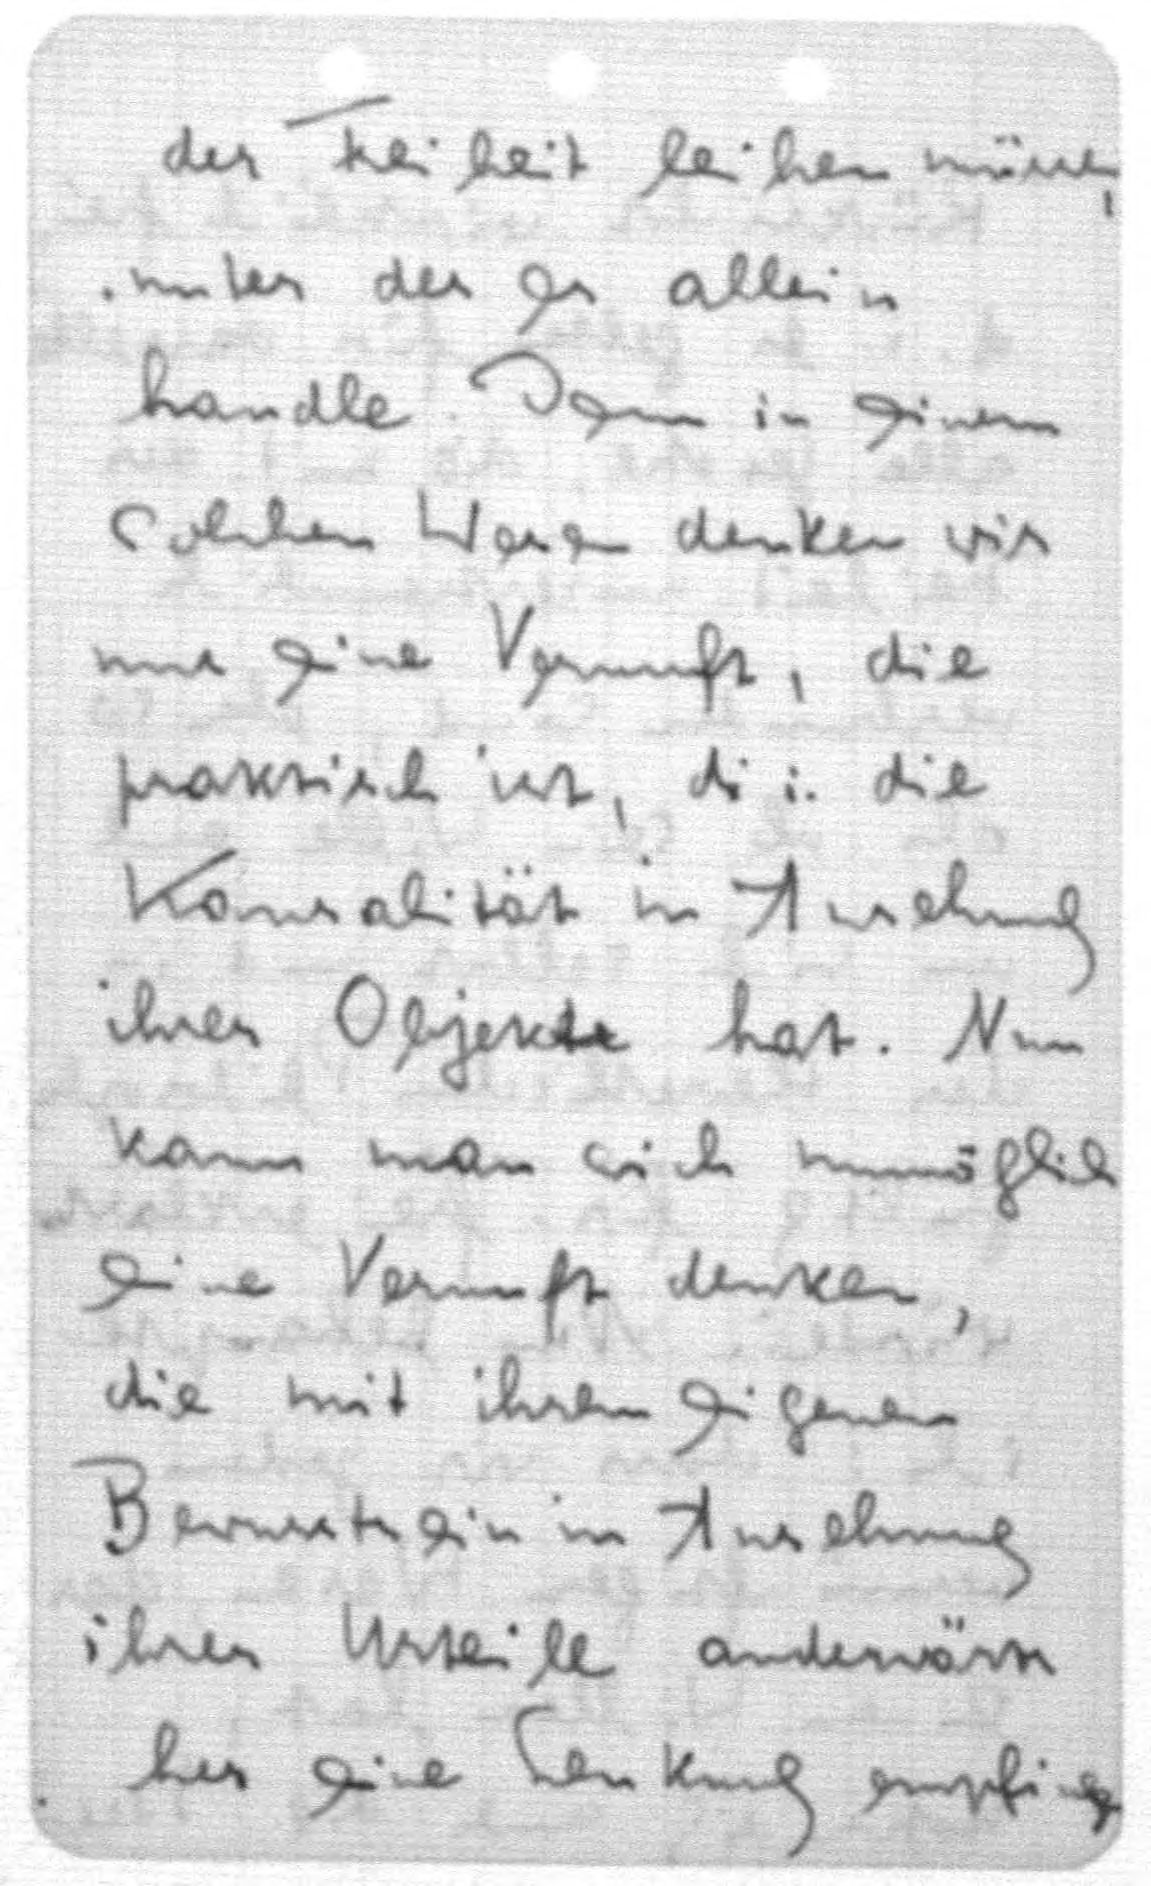 der Freiheit leihen müssen,
unter der es allein
handle. Denn in einem
solchen Wesen denken wir
uns eine Vernunft, die
praktisch ist, d. i. die
Kausalität in Ansehung
ihrer Objekte hat. Nun
kann man sich unmöglich
eine Vernunft denken,
die mit ihrem eigenen
Bewusstsein in Ansehung
ihrer Urteile anderwärts
her eine Lenkung empfinge